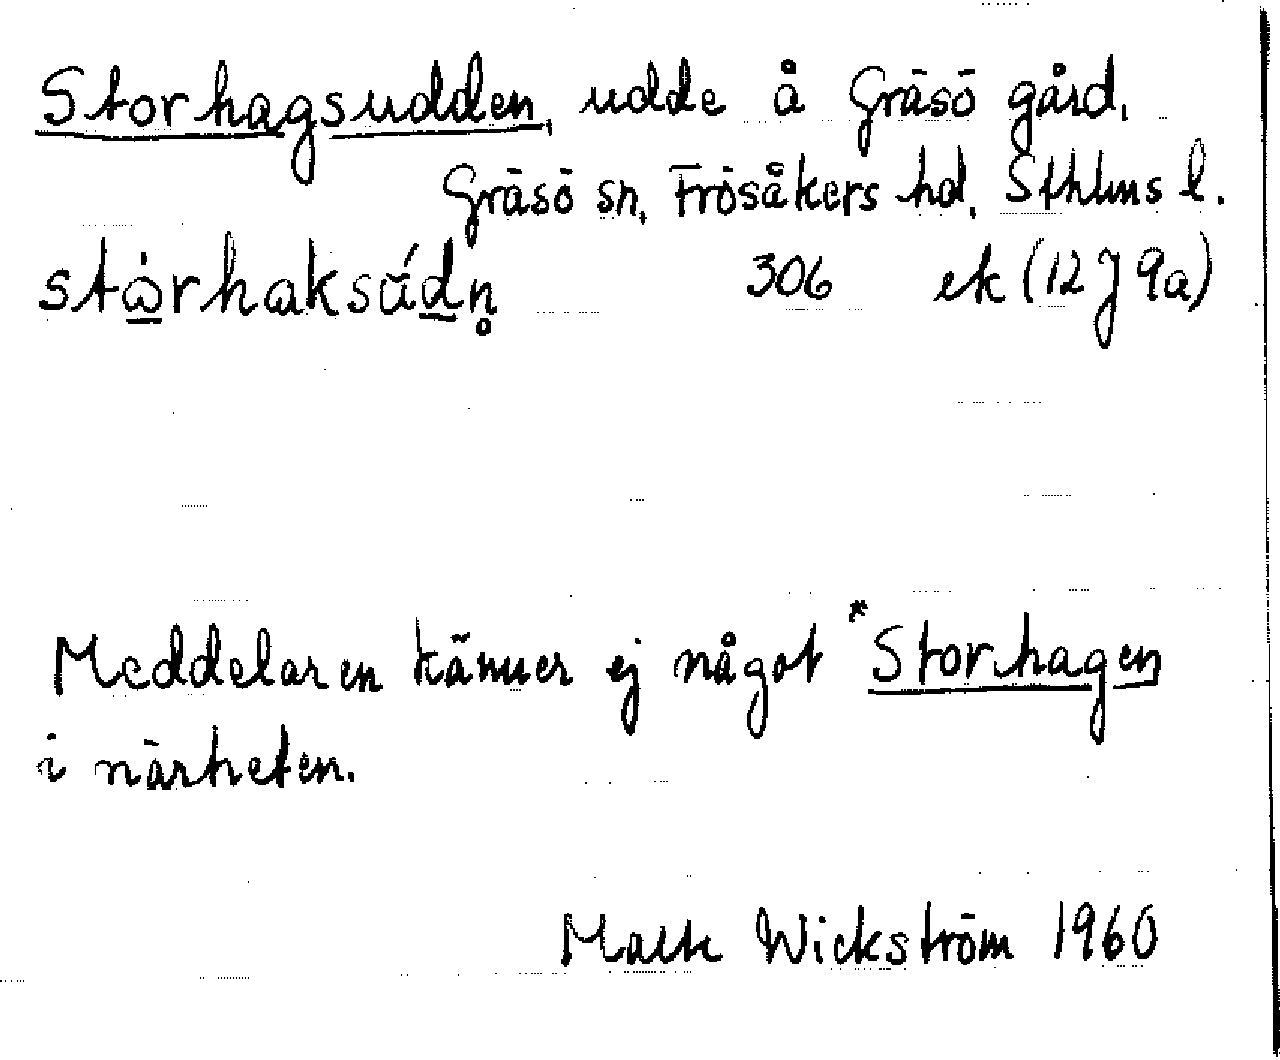 Storhagsudden, udde å Gräsö gård,
Gräsö sn, Frösåkers hd, Sthlms l.
306 ek (12 J 9a)
Meddelaren känner ej något *Storhagen
i närheten.
Malte Wickström 1960